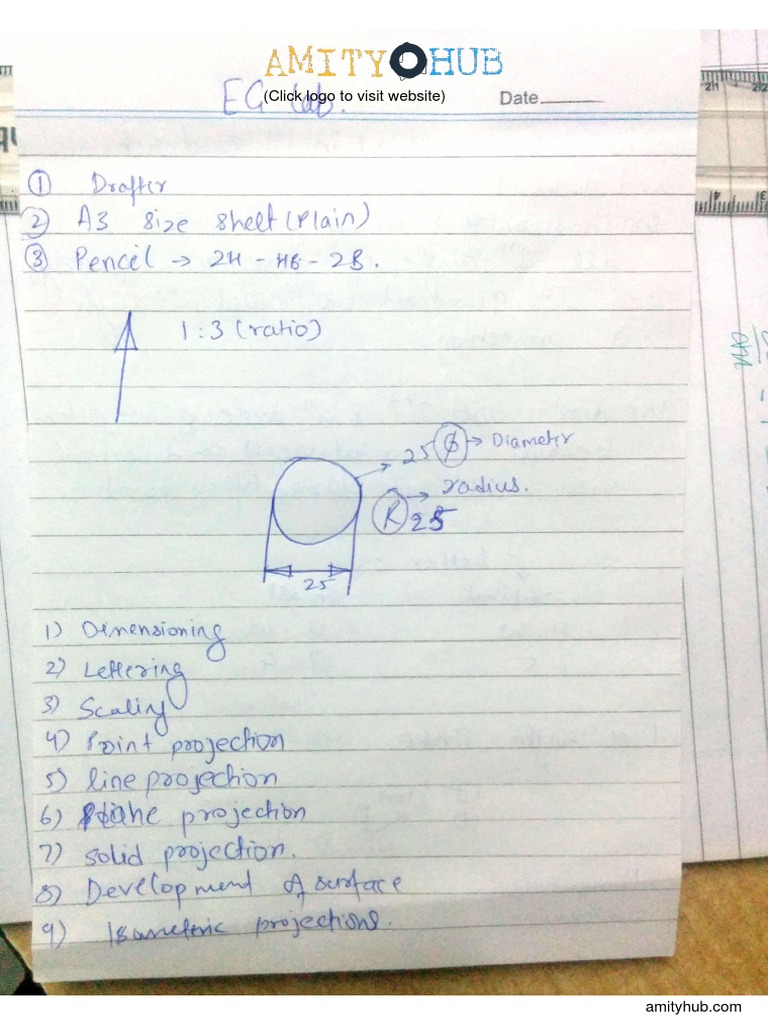 AMITY HUB
(Click logo to visit website)
EG Lab.
Date
① Drafter
② A3 size sheet (Plain)
③ Pencil → 2H - HB - 2B.
1 : 3 (ratio)
25 ϕ → Diameter
R → radius.
25
25
1) Dimensioning
2) Lettering
3) Scaling
4) Point projection
5) line projection
6) Plane projection
7) Solid projection.
8) Development of surface
9) Isometric projections.
amityhub.com